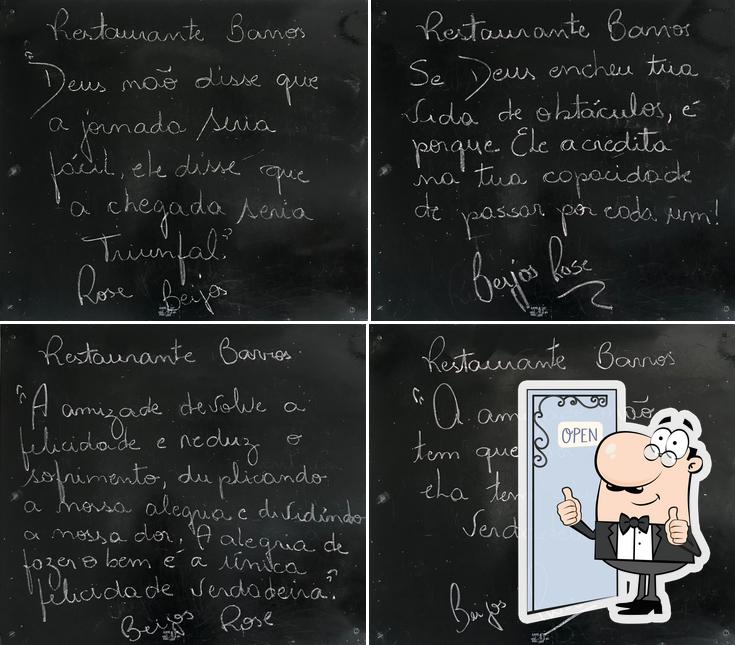 Restaurante Barros
"Deus não disse que
a jornada seria
fácil, ele disse que
a chegada seria
Triunfal."
Rose Beijos
Restaurante Barros
Se Deus encheu tua
vida de obstáculos, é
porque Ele acredita
na tua capacidade
de passar por cada um!
Beijos Rose
Restaurante Barros
"A amizade devolve a
felicidade e reduz o
sofrimento, duplicando
a nossa alegria e dividindo
a nossa dor. A alegria de
fazer o bem é a única
felicidade verdadeira."
Beijos Rose
Restaurante Barros
tem que
ela
Beijos
OPEN